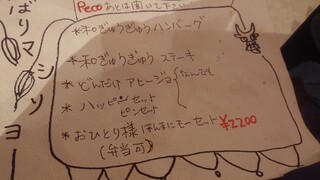 Peco あとは聞いて下さい
* 和ぎゅうぎゅうハンバーグ
* 和ぎゅうぎゅう ステーキ
* どんだけ アヒージョ なんでも
* ハッピーセット
ピンセット
* おひとり様 ほんまにモーセット ¥2200
(弁当可)
ばりマ
シソーヨー